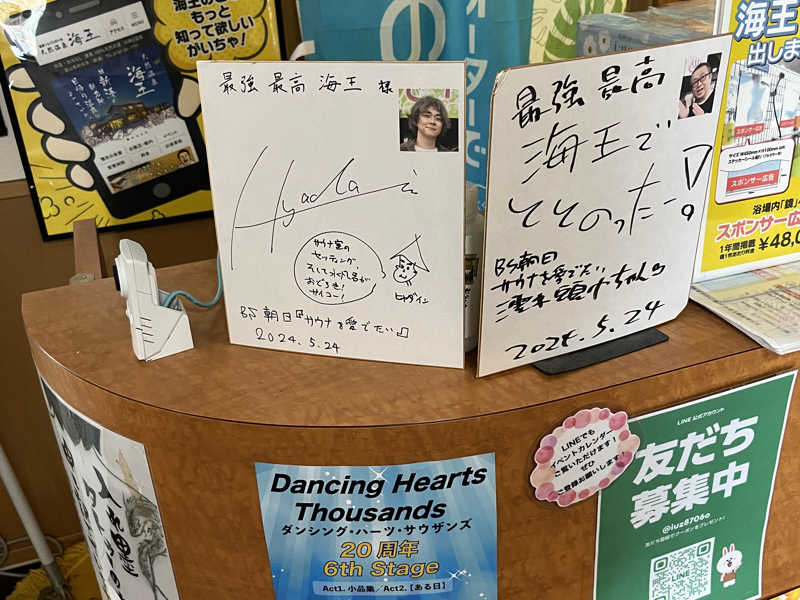 海王のこと
もっと
知って欲しい
がいちゃ!
MENU
天然温泉 海王
最強 最高 海王 様
Hyadain
サウナ室の
セッティング、
そして水風呂が
おどろき!
サイコー!
ヒャダイン
BS朝日『サウナを愛でたい』
2024.5.24
最強 最高
海王で
ととのったー!
BS朝日
サウナを愛でたい
濡れ頭巾ちゃん。
2024.5.24
海王
出しま
スポンサー広告
スポンサー広告
浴場内「鏡」
スポンサー広
1年間掲載
¥48,0
Dancing Hearts
Thousands
ダンシング・ハーツ・サウザンズ
20周年
6th Stage
Act1. 小品集/Act2.【ある日】
LINEでも
イベントカレンダー
ご覧いただけます!
ぜひ
ご登録お願いします!
LINE 公式アカウント
友だち
募集中
@iuz8706o
友だち登録でクーポンをプレゼント!
LINE